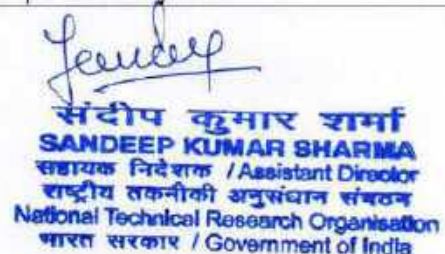 संदीप कुमार शर्मा
SANDEEP KUMAR SHARMA
सहायक निदेशक / Assistant Director
राष्ट्रीय तकनीकी अनुसंधान संगठन
National Technical Research Organisation
भारत सरकार / Government of India